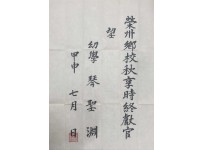 榮州鄉校秋享時終獻官
望
幼學 琴聖淵
甲申 七月 日